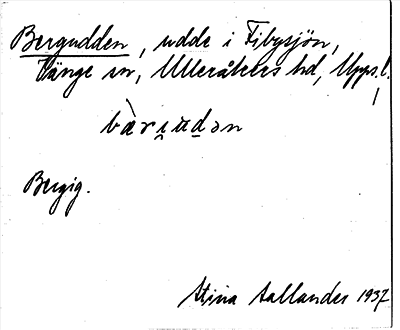 Bergudden, udde i Fibysjön,
Vänge sn, Ulleråkers hd, Upps.l.
bàri̯ud̲ən
Bergig.
Stina Aallander 1937